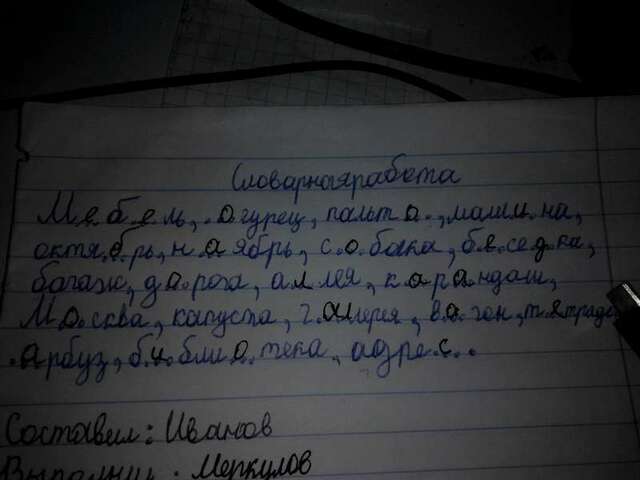 Словарная работа
М.е.б.е.ль, .о.гурец, пальт.о., мали.на,
октя.б.рь, н.а.ябрь, с.о.бака, б.е.се.д.ка,
багаж, д.а.рога, а.л.лея, к.а.р.а.ндаш,
М.о.сква, капуста, г.ал.ерея, в.а.гон, т.е.традь,
.а.рбуз, б.и.бли.о.тека, адре.с..
Составил: Иванов
Выполнил: Меркулов